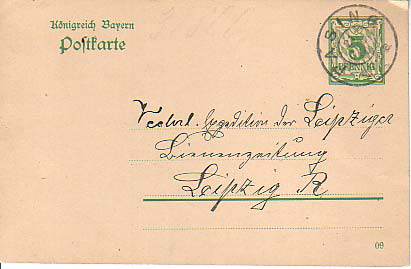 Königreich Bayern
Postkarte
5
PFENNIG
Verehrl. Expedition der Leipziger
Bienenzeitung
Leipzig R
09